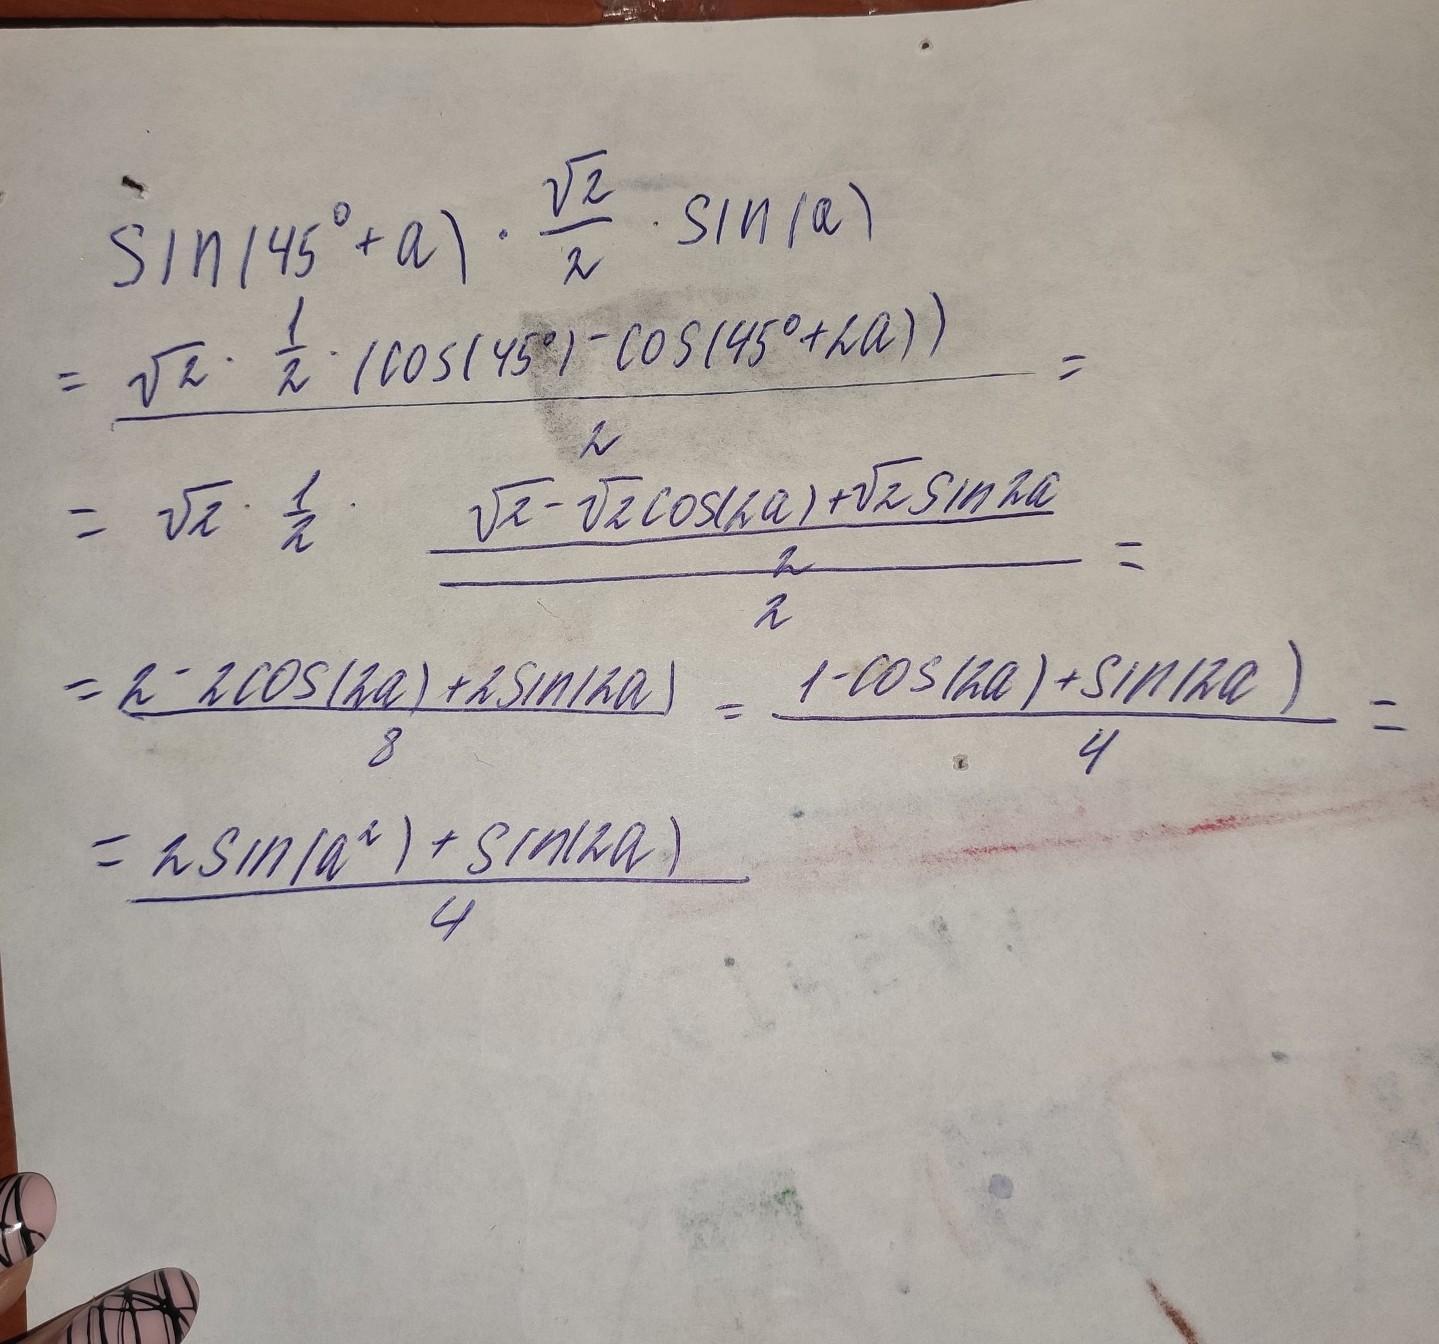 sin(45°+a) · √2/2 · sin(a)
= √2 · 1/2 · (cos(45°)-cos(45°+2a)) / 2 =
= √2 · 1/2 · √2-√2cos(2a)+√2sin2a / 2 / 2 =
= 2-2cos(2a)+2sin(2a) / 8 = 1-cos(2a)+sin(2a) / 4 =
= 2sin(a²)+sin(2a) / 4